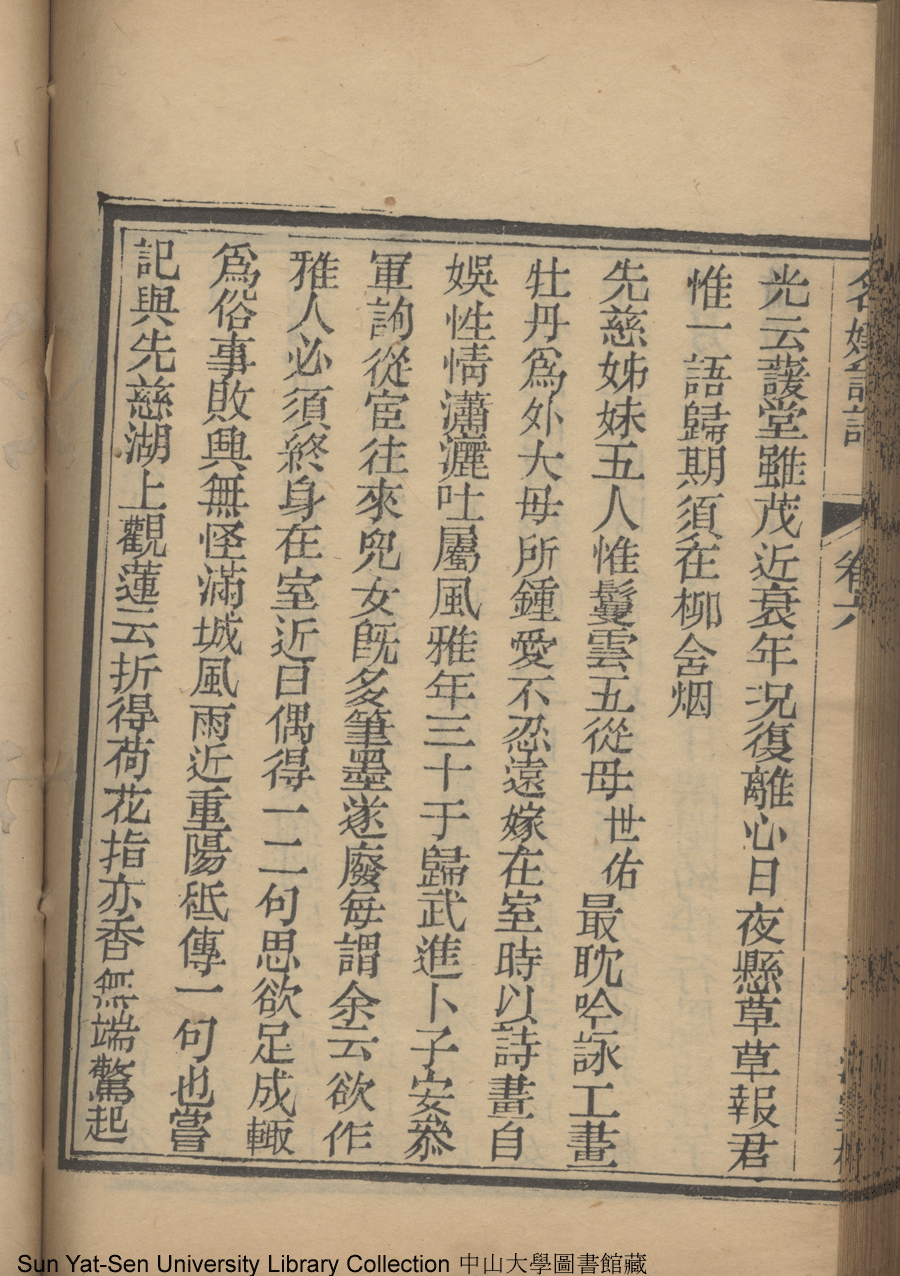 名媛詩話 卷六
光云護堂雖茂近衰年況復離心日夜懸草草報君
惟一語歸期須在柳含烟
先慈姊妹五人惟鬘雲五從母世佑最耽吟詠工畫
牡丹爲外大母所鍾愛不忍遠嫁在室時以詩畫自
娛性情瀟灑吐屬風雅年三十于歸武進卜子安叅
軍詢從宦往來兒女旣多筆墨遂廢每謂余云欲作
雅人必須終身在室近日偶得一二句思欲足成輙
爲俗事敗興無怪滿城風雨近重陽秪傳一句也嘗
記與先慈湖上觀蓮云折得荷花指亦香無端驚起
Sun Yat-Sen University Library Collection 中山大學圖書館藏